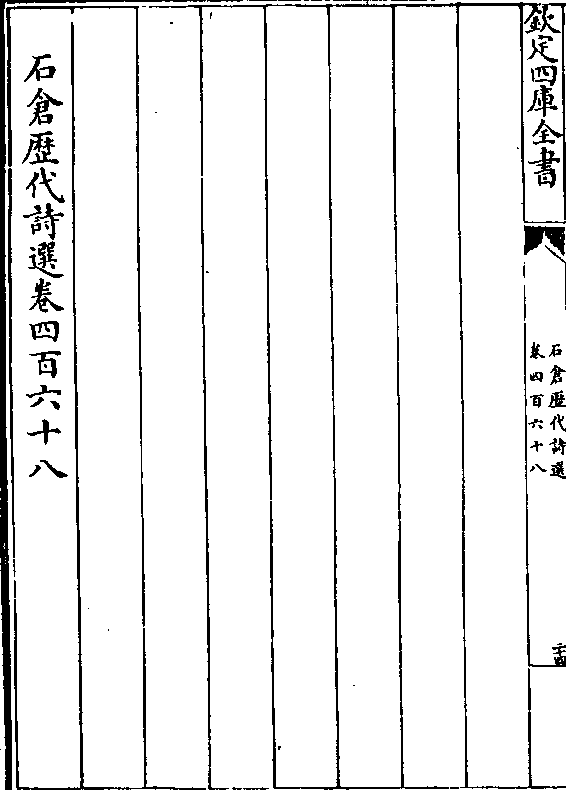 欽定四庫全書
石倉歴代詩選
卷四百六十八
二十四
石倉歴代詩選卷四百六十八